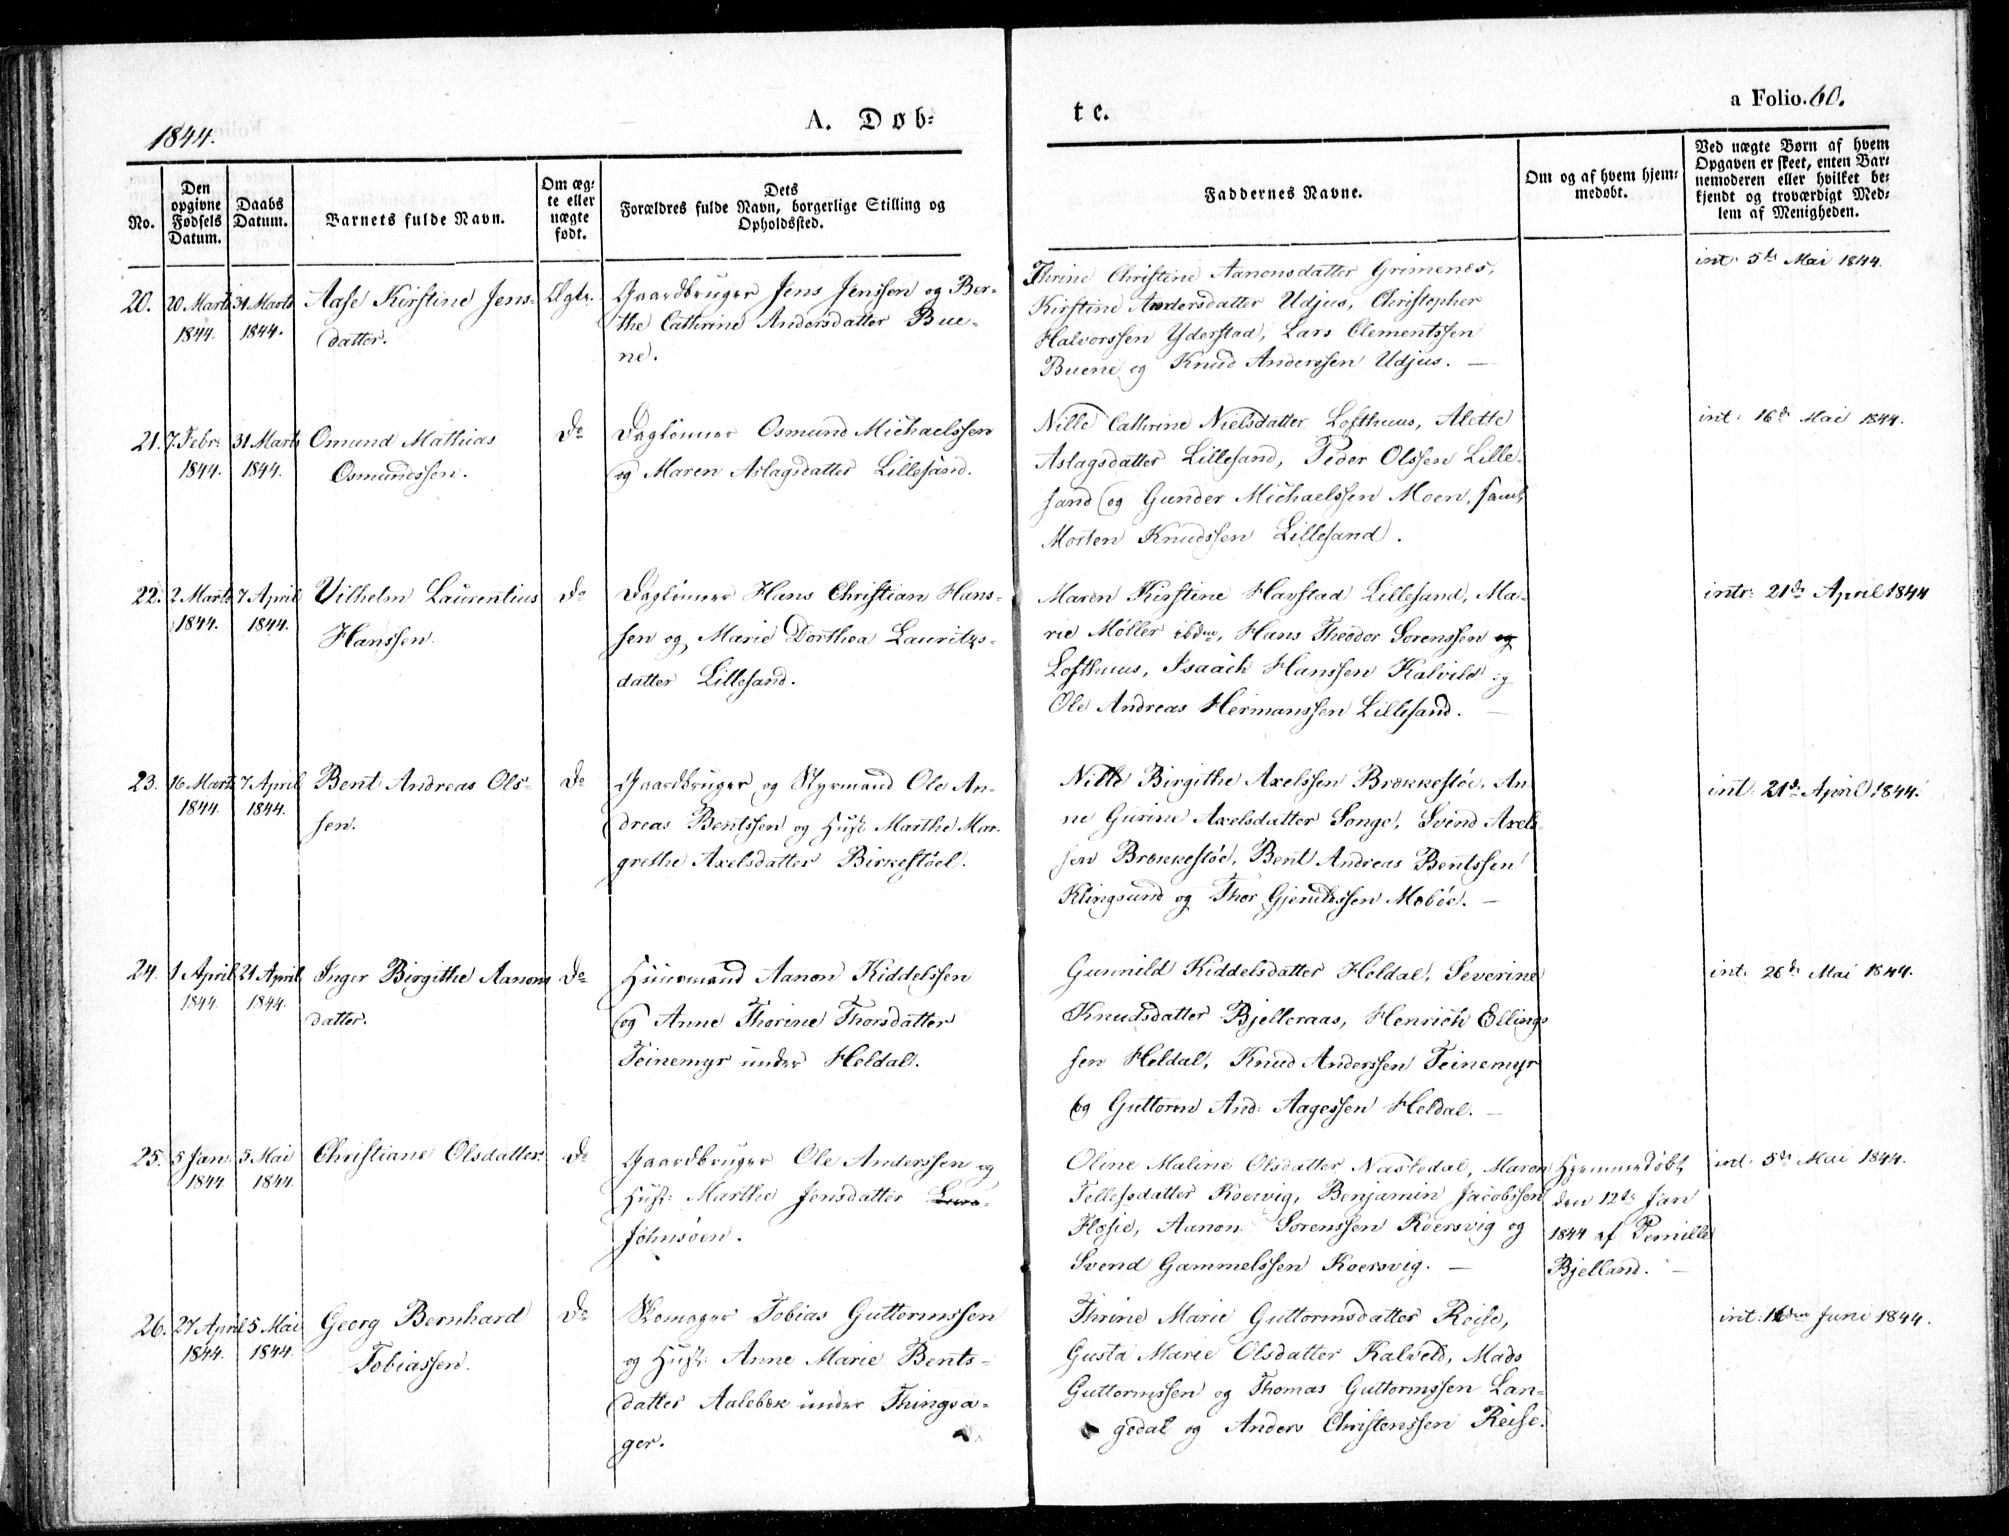 1844.
A. Døb-
te.
a Folio. 60.
No.
Den opgivne Fødsels Datum.
Daabs Datum.
Barnets fulde Navn.
Om ægte eller uægte født.
Dets Forældres fulde Navn, borgerlige Stilling og Opholdssted.
Faddernes Navne.
Om og af hvem hjemmedøbt.
Ved uægte Børn af hvem Opgaven er skeet, enten Barnemoderen eller hvilket bekjendt og troværdigt Medlem af Menigheden.
20.
20 Marts 1844.
31 Marts 1844.
Aase Kirstine Jens-
datter.
Ægte.
Gaardbruger Jens Jenssen og Ber-
the Cathrine Andersdatter Bue-
ne.
Thrine Christine Aanonsdatter Grimenes,
Kirstine Andersdatter Udjus, Christopher
Halvorssen Yderstad, Lars Clementssen
Buene og Knud Anderssen Udjus. —
int. 5te Mai 1844.
21.
7 Febr. 1844.
31 Marts 1844.
Omund Mathias
Osmundssen.
Do
Daglønner Osmund Michaelssen
og Maren Aslagsdatter Lillesand.
Nille Cathrine Nielsdatter Lofthuus, Alette
Aslagsdatter Lillesand, Peder Olssen Lille-
sand og Gunder Michaelssen Moen, samt
Morten Knudssen Lillesand.
int: 16de Mai 1844.
22.
2 Marts 1844.
7 April 1844.
Vilhelm Laurentius
Hanssen.
Do
Daglønner Hans Christian Hans-
sen og Marie Dorthea Lauritzs-
datter Lillesand.
Maren Kirstine Havstad Lillesand, Ma-
rie Møller ibdm, Hans Theodor Sørenssen og
Lofthuus, Isaach Hanssen Kalvild og
Ole Andreas Hermanssen Lillesand. —
intr: 21de April 1844
23.
16 Marts 1844.
7 April 1844.
Bent Andreas Ols-
sen.
Do
Gaardbruger og Styrmand Ole An-
dreas Bentssen og Hust Marthe Mar-
grethe Axelsdatter Birkestøel.
Nille Birgithe Axelssen Brækkestøe, An-
ne Gurine Axelsdatter Songe, Svend Axels-
sen Brækkestøe, Bent Andreas Bentssen
Klingsund og Thor Gjerulssen Mobøe. —
int: 21de April 1844.
24.
1 April 1844.
21 April 1844.
Inger Birgithe Aanons
datter.
Do
Huusmand Aanon Kiddelssen
og Anne Thorine Thorsdatter
Teinemyr under Heldal.
Gunnild Kiddelsdatter Heldal, Severine
Knudsdatter Bjelleraas, Henrich Ellings
sen Heldal, Knud Anderssen Teinemyr
og Guttorm And: Aagessen Heldal. —
int: 26de Mai 1844.
25.
5 Jan 1844
5 Mai 1844.
Christiane Olsdatter.
Do
Gaardbruger Ole Anderssen og
Hust: Marthe Jensdatter
Johnsøen.
Oline Maline Olsdatter Nastedal, Maren
Tellefsdatter Koervig, Benjamin Jacobssen
Høsie, Aanon Sørenssen Koersvig og
Svend Gammelssen Koersvig. —
Hjemmedøbt
den 12te Jan
1844 af Pernille
Bjelland. —
int: 5te Mai 1844.
26.
27 April 1844.
5 Mai 1844.
Georg Bernhard
Tobiassen.
Do
Skomager Tobias Guttormssen
og Hust: Anne Marie Bents-
datter Aalebæk under Thingsa-
ger.
Thrine Marie Guttormsdatter Reise,
Gusta Marie Olsdatter Kalveld, Mads
Guttormssen og Thomas Guttormssen Lan-
gedal og Anders Christenssen Reise.
int: 16den Juni 1844.